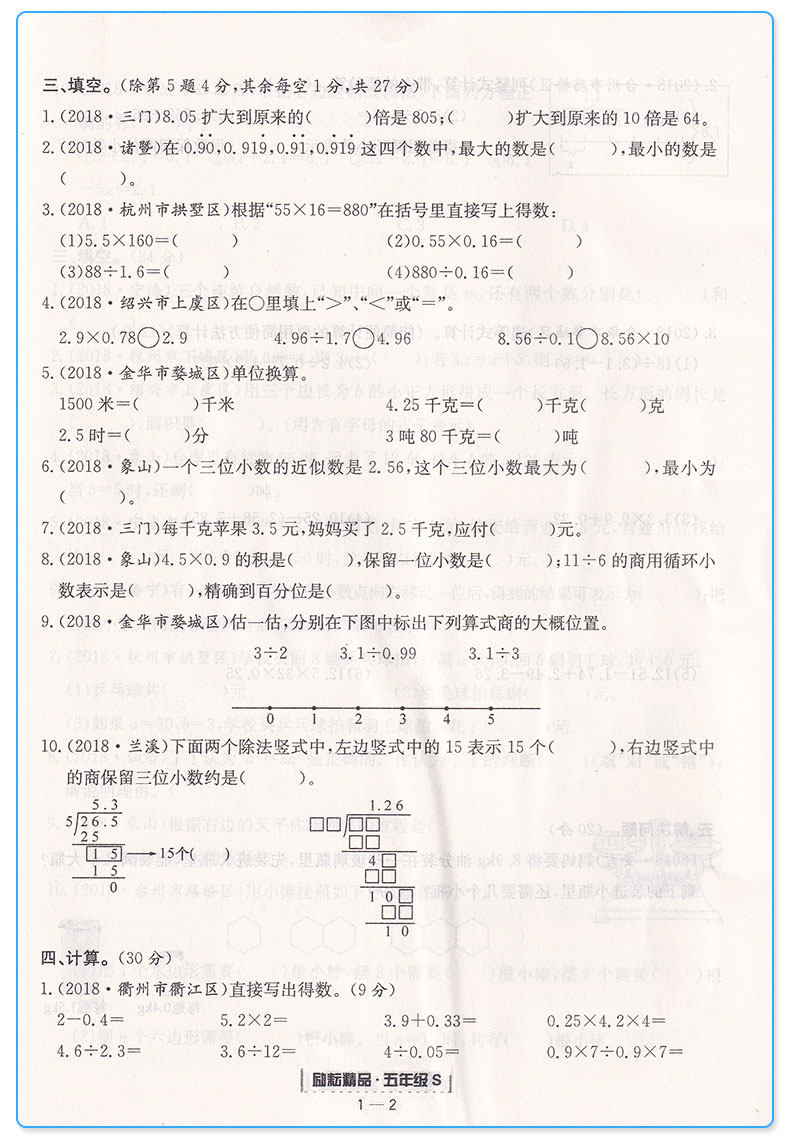 三、填空。(除第5题4分,其余每空1分,共27分)
1.(2018·三门)8.05扩大到原来的(  )倍是805;(  )扩大到原来的10倍是64。
2.(2018·诸暨)在0.9̇0̇,0.919,0.9̇1̇,0.9̇19̇这四个数中,最大的数是(  ),最小的数是
(  )。
3.(2018·杭州市拱墅区)根据“55×16=880”在括号里直接写上得数:
(1)5.5×160=(  ) (2)0.55×0.16=(  )
(3)88÷1.6=(  ) (4)880÷0.16=(  )
4.(2018·绍兴市上虞区)在○里填上“>”、“<”或“=”。
2.9×0.78○2.9 4.96÷1.7○4.96 8.56÷0.1○8.56×10
5.(2018·金华市婺城区)单位换算。
1500米=(  )千米 4.25千克=(  )千克(  )克
2.5时=(  )分 3吨80千克=(  )吨
6.(2018·象山)一个三位小数的近似数是2.56,这个三位小数最大为(  ),最小为
(  )。
7.(2018·三门)每千克苹果3.5元,妈妈买了2.5千克,应付(  )元。
8.(2018·象山)4.5×0.9的积是(  ),保留一位小数是(  );11÷6的商用循环小
数表示是(  ),精确到百分位是(  )。
9.(2018·金华市婺城区)估一估,分别在下图中标出下列算式商的大概位置。
3÷2 3.1÷0.99 3.1÷3
0 1 2 3 4 5
10.(2018·兰溪)下面两个除法竖式中,左边竖式中的15表示15个(  ),右边竖式中
的商保留三位小数约是(  )。
5.3
5 26.5
25
15 → 15个(  )
15
0
1.26
□□ □□
□□
4□
□□
10□
□□
10
四、计算。(30分)
1.(2018·衢州市衢江区)直接写出得数。(9分)
2-0.4= 5.2×2= 3.9+0.33= 0.25×4.2×4=
4.6÷2.3= 3.6÷12= 4÷0.05= 0.9×7÷0.9×7=
励耘精品·五年级S
1—2